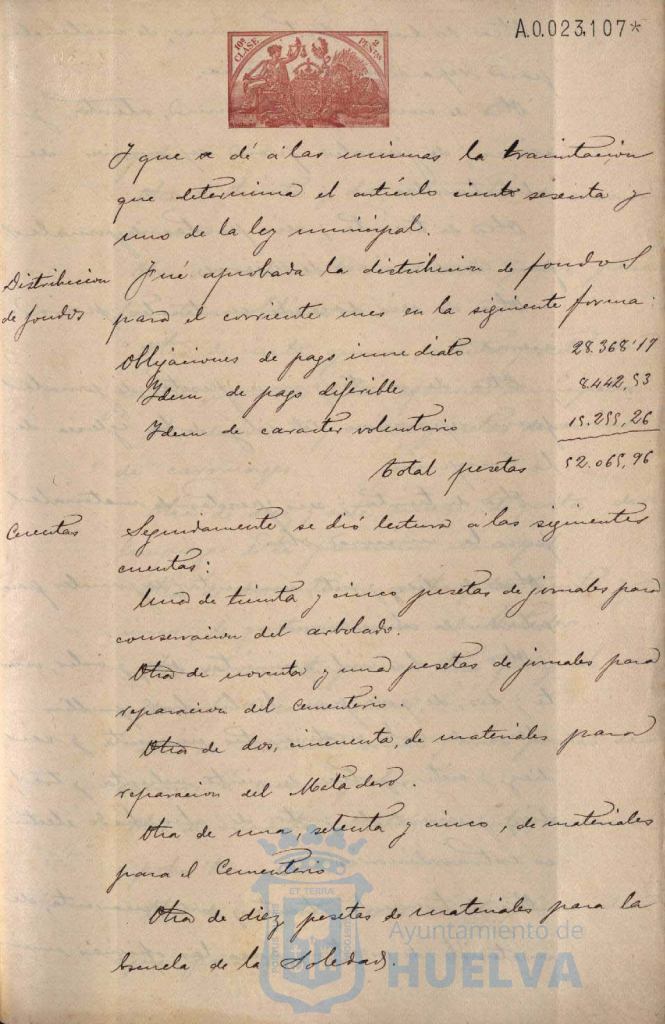 A.0.023,107*
10ª CLASE
2 PESETAS
Y que se dé á las mismas la tramitación
que determina el artículo ciento sesenta y
uno de la ley municipal.
Distribucion
de fondos
Fué aprobada la distribucion de fondos
para el corriente mes en la siguiente forma:
Obligaciones de pago inmediato 28.368'17
Idem de pago diferible 8.442,53
Idem de caracter voluntario 15.255,26
Total pesetas 52.065,96
Cuentas
Seguidamente se dió lectura á las siguientes
cuentas:
Una de treinta y cinco pesetas de jornales para
conservacion del arbolado.
Otra de noventa y una pesetas de jornales para
reparacion del Cementerio.
Otra de dos, cincuenta, de materiales para
reparacion del Matadero.
Otra de una, setenta y cinco, de materiales
para el Cementerio
Otra de diez pesetas de materiales para la
Escuela de la Soledad.
ET TERRA
Ayuntamiento de
HUELVA